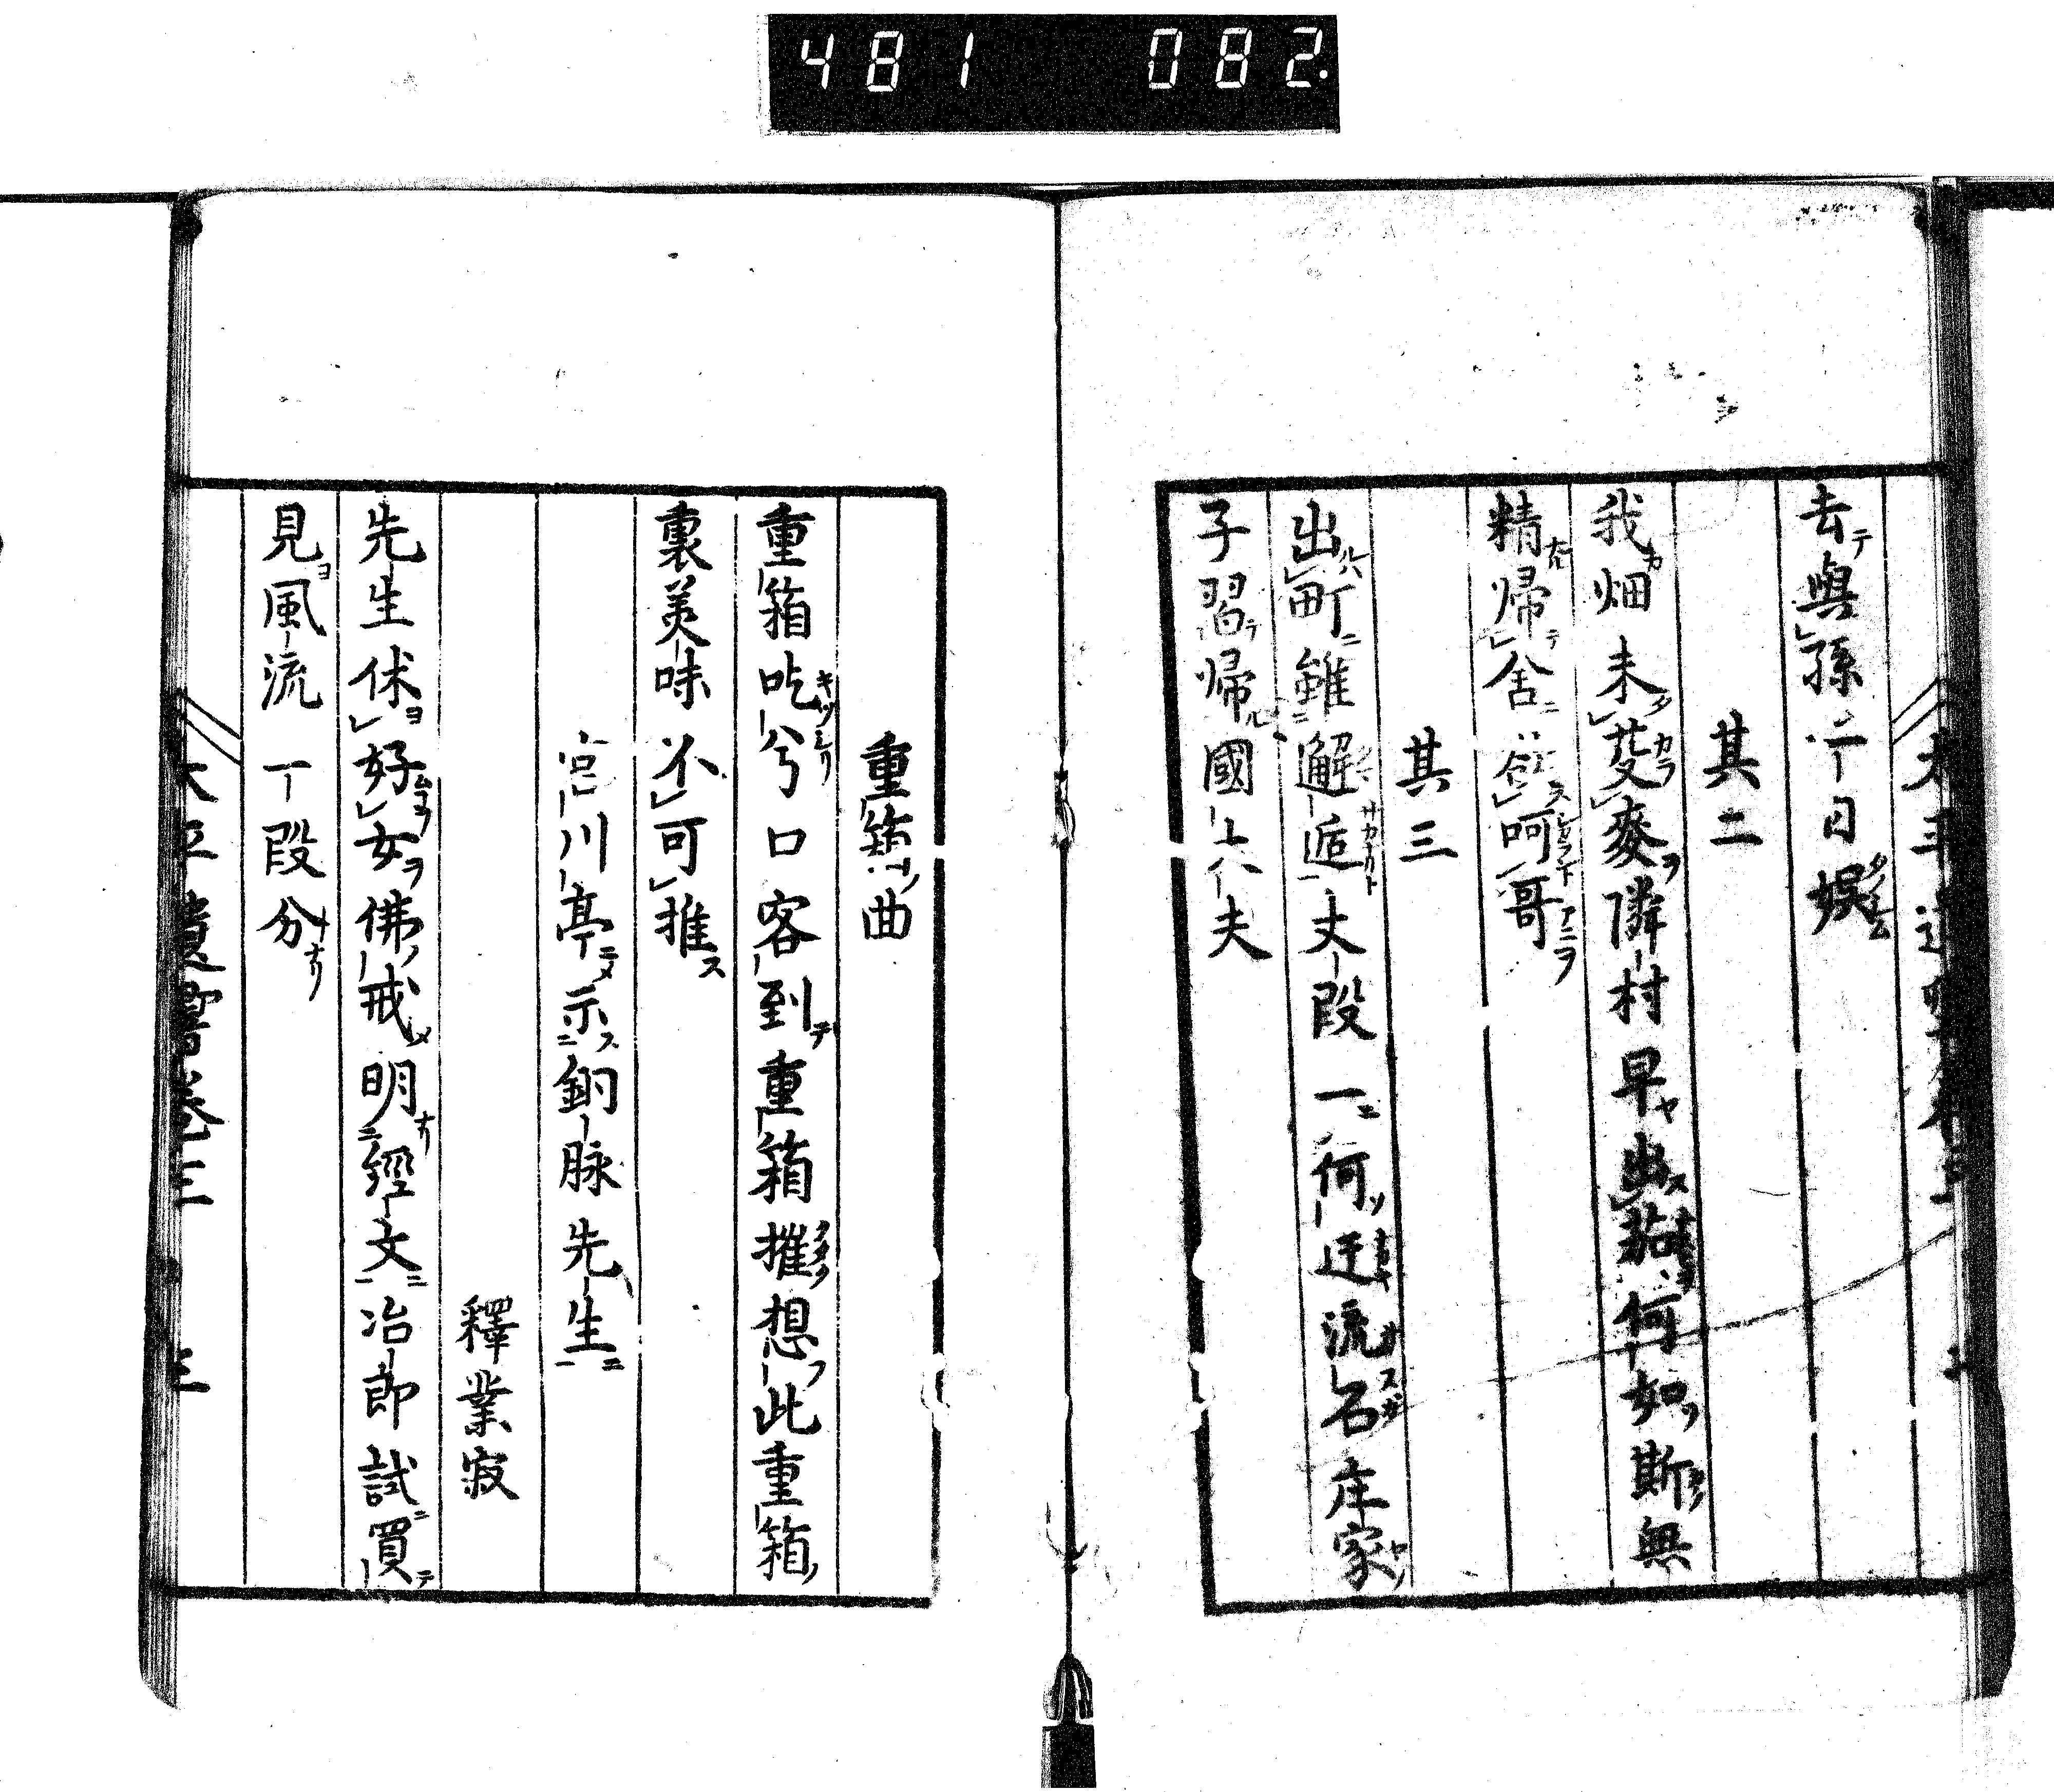 481 082.
去與孫二日娯
其二
我畑未芟麥隣村早出茄何如斯無
精帰舎欲呵哥
其三
出町雖邂逅丈段一何迂流石庄家
子習帰國六夫
重箱曲
重箱吃兮口客到重箱摧想此重箱
裏美味不可推
宮川亭示銅脉先生
釋業寂
先生休好女佛戒明經文冶郎試買
見風流一段分
太平遺響卷三 三